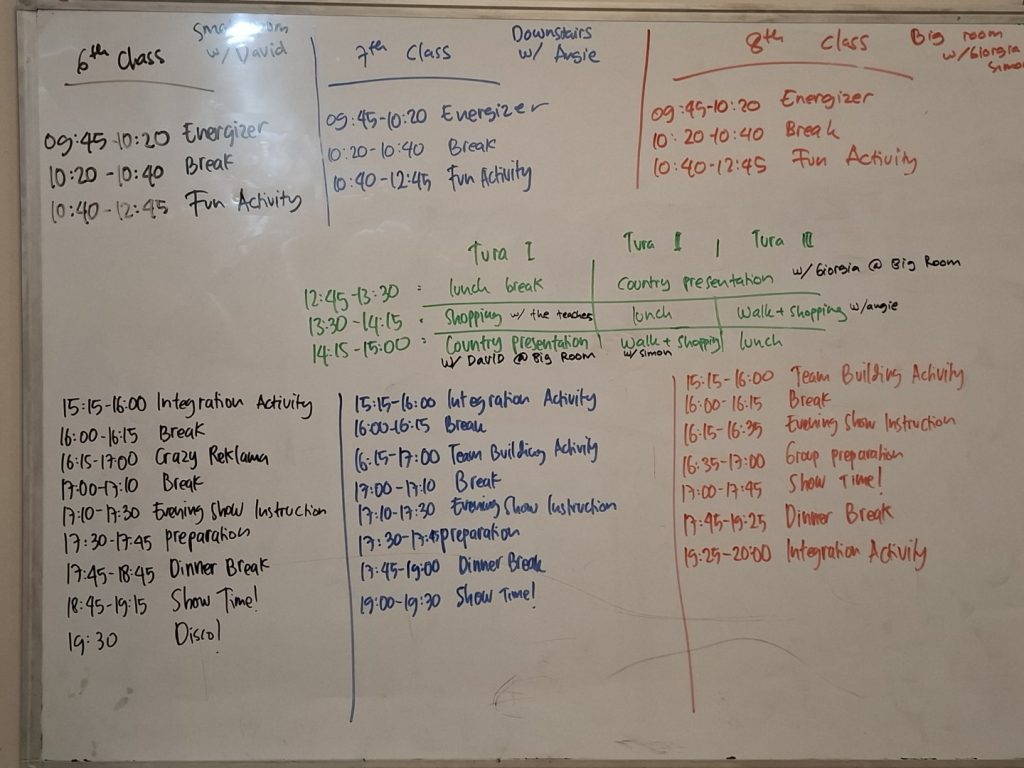 6th Class
Small room
w/ David
09:45-10:20 Energizer
10:20-10:40 Break
10:40-12:45 Fun Activity
7th Class
Downstairs
w/ Angie
09:45-10:20 Energizer
10:20-10:40 Break
10:40-12:45 Fun Activity
8th Class
Big room
w/Giorgia
Simon
09:45-10:20 Energizer
10:20-10:40 Break
10:40-12:45 Fun Activity
Tura I Tura II Tura III
12:45-13:30 : lunch break Country presentation w/Giorgia @ Big Room
13:30-14:15 : Shopping w/ the teaches lunch Walk + shopping w/angie
14:15-15:00 : Country presentation Walk + shopping lunch
w/ DAVID @ Big ROOM w/simon
15:15-16:00 Integration Activity
16:00-16:15 Break
16:15-17:00 Crazy Reklama
17:00-17:10 Break
17:10-17:30 Evening Show Instruction
17:30-17:45 preparation
17:45-18:45 Dinner Break
18:45-19:15 Show Time!
19:30 Disco!
15:15-16:00 Integration Activity
16:00-16:15 Break
16:15-17:00 Team Building Activity
17:00-17:10 Break
17:10-17:30 Evening Show Instruction
17:30-17:45 preparation
17:45-19:00 Dinner Break
19:00-19:30 Show Time!
15:15-16:00 Team Building Activity
16:00-16:15 Break
16:15-16:35 Evening Show Instruction
16:35-17:00 Group preparation
17:00-17:45 Show Time!
17:45-19:25 Dinner Break
19:25-20:00 Integration Activity